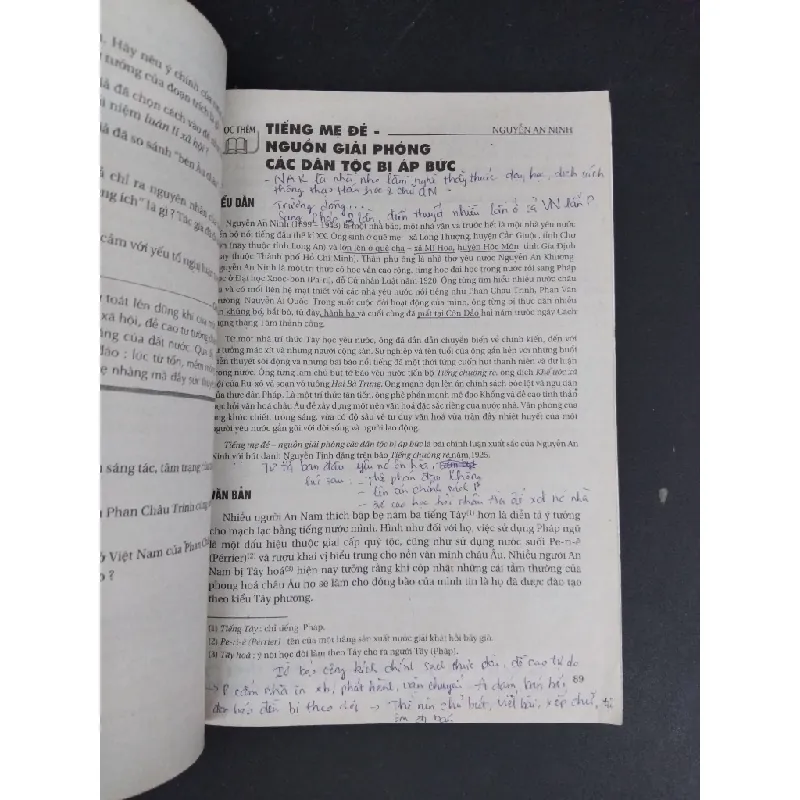 . Hãy nêu ý chính của
tưởng của đoạn trích là gì
là đã chọn cách vào đề
niệm luân lí xã hội?
là đã so sánh "bên Âu châu
chỉ ra nguyên nhân của
ng ích" là gì? Tác giả đã
cảm với yếu tố nghị luận
toát lên dũng khí của
xã hội, đề cao tư tưởng
ng của đất nước. Qua
đáo: lúc từ tốn, mềm mỏng
nhàng mà đầy sức
sáng tác, tâm trạng
Phan Châu Trinh cũng
Việt Nam của Phan Châu
o ?
ỌC THÊM
TIẾNG MẸ ĐẺ -
NGUYỄN AN NINH
NGUỒN GIẢI PHÓNG
CÁC DÂN TỘC BỊ ÁP BỨC
- NAK là nhà nho làm nghề thầy thuốc, dạy học, dịch sách
thông thạo Hán học & chữ QN
ỂU DẪN
Nguyễn An Ninh (1899 - 1943) là một nhà báo, một nhà văn và trước hết là một nhà yêu nước
ến bộ nổi tiếng đầu thế kỉ XX. Ông sinh ở quê mẹ - xã Long Thượng, huyện Cần Giuộc, tỉnh Chợ
ớn (nay thuộc tỉnh Long An) và lớn lên ở quê cha - xã Mĩ Hoà, huyện Hóc Môn, tỉnh Gia Định
nay thuộc Thành phố Hồ Chí Minh). Thân phụ ông là nhà thơ yêu nước Nguyễn An Khương.
guyễn An Ninh là một trí thức có học vấn cao rộng, từng học đại học trong nước rồi sang Pháp
ọc ở Đại học Xoóc-bon (Pa-ri), đỗ Cử nhân Luật năm 1920. Ông từng tìm hiểu nhiều nước châu
u và có mối liên hệ mật thiết với các nhà yêu nước nổi tiếng như Phan Châu Trinh, Phan Văn
rường, Nguyễn Ái Quốc. Trong suốt cuộc đời hoạt động của mình, ông từng bị thực dân nhiều
ần khủng bố, bắt bớ, tù đày, hành hạ và cuối cùng đã mất tại Côn Đảo hai năm trước ngày Cách
mạng tháng Tám thành công.
Từ một nhà trí thức Tây học yêu nước, ông đã dần dần chuyển biến về chính kiến, đến với
ư tưởng mác xít và những người cộng sản. Sự nghiệp và tên tuổi của ông gắn liền với những buổi
diễn thuyết sôi động và những bài báo nổi tiếng đã một thời từng cuốn hút thanh niên và dư luận
rong nước. Ông từng làm chủ bút tờ báo yêu nước tiến bộ Tiếng chuông rè, ông dịch Khế ước xã
hội của Ru-xô và soạn vở tuồng Hai Bà Trưng. Ông mạnh dạn lên án chính sách bóc lột và ngu dân
của thực dân Pháp. Là một trí thức tân tiến, ông phê phán mạnh mẽ đạo Khổng và đề cao tinh thần
học hỏi văn hoá châu Âu để xây dựng một nền văn hoá đặc sắc riêng của nước nhà. Văn phong của
ông khúc chiết, trong sáng, vừa có độ sâu về tư duy văn hoá vừa tràn đầy nhiệt huyết của một
người yêu nước gần gũi với đời sống và người lao động.
Tiếng mẹ đẻ - nguồn giải phóng các dân tộc bị áp bức là bài chính luận xuất sắc của Nguyễn An
Ninh với bút danh Nguyễn Tịnh đăng trên báo Tiếng chuông rè năm 1925.
Tư tg ban đầu yêu nc
lúc sau: - phê phán đạo Khổng
- lên án chính sách P
VĂN BẢN
Nhiều người An Nam thích bập bẹ năm ba tiếng Tây(1) hơn là diễn tả ý tưởng
cho mạch lạc bằng tiếng nước mình. Hình như đối với họ, việc sử dụng Pháp ngữ
là một dấu hiệu thuộc giai cấp quý tộc, cũng như sử dụng nước suối Pe-ri-ê
(Perrier)(2) và rượu khai vị biểu trưng cho nền văn minh châu Âu. Nhiều người An
Nam bị Tây hoá(3) hiện nay tưởng rằng khi cóp nhặt những cái tầm thường của
phong hoá châu Âu họ sẽ làm cho đồng bào của mình tin là họ đã được đào tạo
theo kiểu Tây phương.
(1) Tiếng Tây: chỉ tiếng Pháp.
(2) Pe-ri-ê (Perrier): tên của một hãng sản xuất nước giải khát hồi bấy giờ.
(3) Tây hoá: ý nói học đòi làm theo Tây cho ra người Tây (Pháp).
Tờ báo công kích chính sách thực dân, đề cao tự do
89
→ P cấm nhà in xb, phát hành, vận chuyển
bị theo dõi → chủ bút, viết bài, xếp chữ,